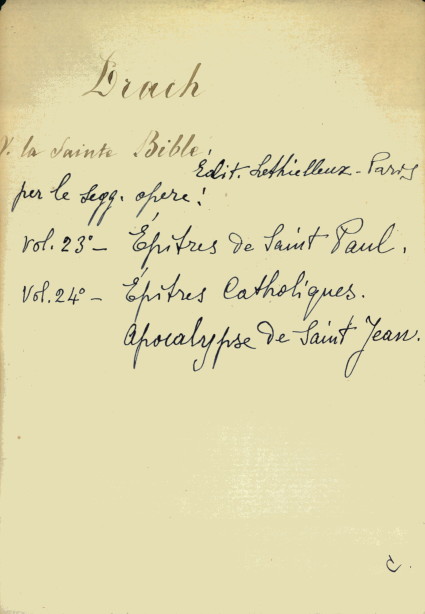 Drach
V. la Sainte Bible,
Edit. Lethielleux - Paris
per le segg. opere:
vol. 23° - Épîtres de Saint Paul.
vol. 24° - Épîtres Catholiques.
Apocalypse de Saint Jean.
C.